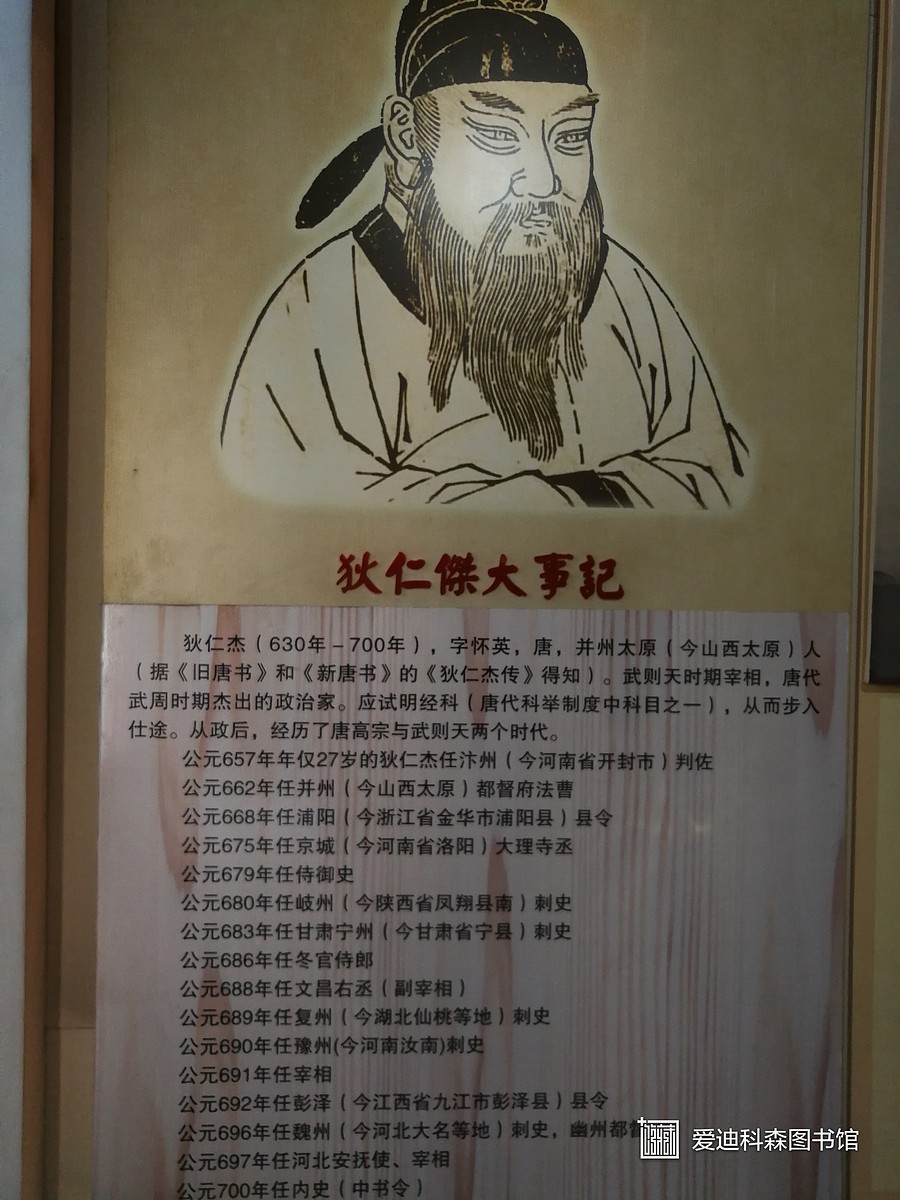 狄仁傑大事記
狄仁杰（630年－700年），字怀英，唐，并州太原（今山西太原）人
（据《旧唐书》和《新唐书》的《狄仁杰传》得知）。武则天时期宰相，唐代
武周时期杰出的政治家。应试明经科（唐代科举制度中科目之一），从而步入
仕途。从政后，经历了唐高宗与武则天两个时代。
公元657年年仅27岁的狄仁杰任汴州（今河南省开封市）判佐
公元662年任并州（今山西太原）都督府法曹
公元668年任浦阳（今浙江省金华市浦阳县）县令
公元675年任京城（今河南省洛阳）大理寺丞
公元679年任侍御史
公元680年任岐州（今陕西省凤翔县南）刺史
公元683年任甘肃宁州（今甘肃省宁县）刺史
公元686年任冬官侍郎
公元688年任文昌右丞（副宰相）
公元689年任复州（今湖北仙桃等地）刺史
公元690年任豫州(今河南汝南)刺史
公元691年任宰相
公元692年任彭泽（今江西省九江市彭泽县）县令
公元696年任魏州（今河北大名等地）刺史，幽州都督
公元697年任河北安抚使、宰相
公元700年任内史（中书令）
爱迪科森图书馆